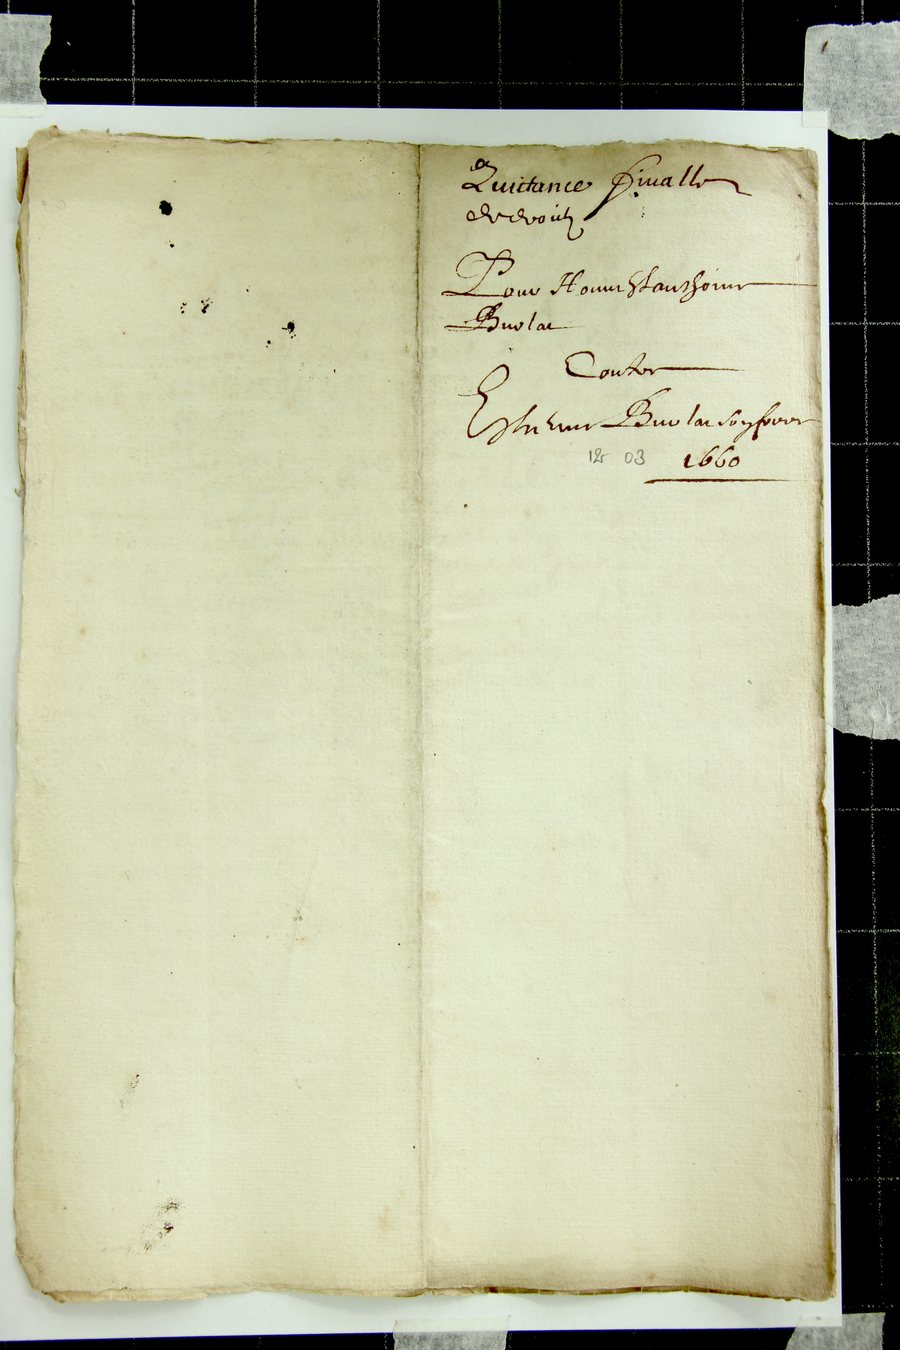 Quictance finalle
de droitz
Pour Honneste Anthoine
Burlat
Contre
Estienne Burlat son frere
12 03 1660